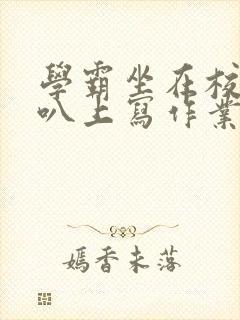 學霸坐在校
叭上寫作業
嫣香未落